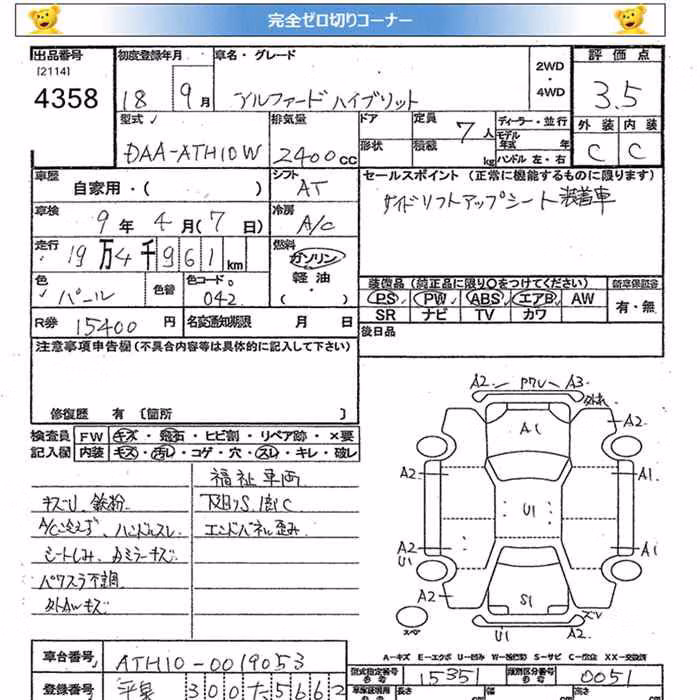 完全ゼロ切りコーナー
出品番号 初度登録年月 車名・グレード 2WD・4WD 評価点
[2114]
4358 18 9月 アルファードハイブリット 3.5
型式 排気量 ドア 定員 7人 ディーラー・並行 外装 内装
形状 積載 kg モデル年式 年式 ハンドル 左・右
DAA-ATH10W 2400cc C C
車歴 シフト セールスポイント (正常に機能するものに限ります)
自家用・( ) AT サイドリフトアップシート装着車
車検 9年4月(7日) 冷房 A/C
走行 19万4千961km 燃料 ガソリン
軽油・( )
色 パール 色替 色コード 042
装備品 (純正品に限り○をつけてください) 新車保証書
PS PW ABS エアB AW 有・無
SR ナビ TV カワ
R券 15400円 名変通知期限 月 日
後日品
注意事項申告欄(不具合内容等は具体的に記入して下さい)
修復歴 有 [箇所 ]
検査員 FW キズ・飛石・ヒビ割・リペア跡・×要
記入欄 内装 キズ・汚レ・コゲ・穴・スレ・キレ・破レ
福祉車両
キズU、鉄粉 下廻りS、樹C
A/C冷えず、ハンドルスレ エンドパネル歪み
シートしみ、Bミラーキズ
パワスラ不調
外AWキズ
A2 PワU A3
外れ
A1 A2
A2 A1
U1
A2 U1 A1
A2 S1 A2
スペア U1 A2 ズレ
A-キズ E-エクボ U-凹み W-波打ち S-サビ C-腐食 XX-交換済
車台番号 ATH10-0019053
型式指定番号 15351 類別区分番号 0051
登録番号 300 5662
長さ 幅 高さ